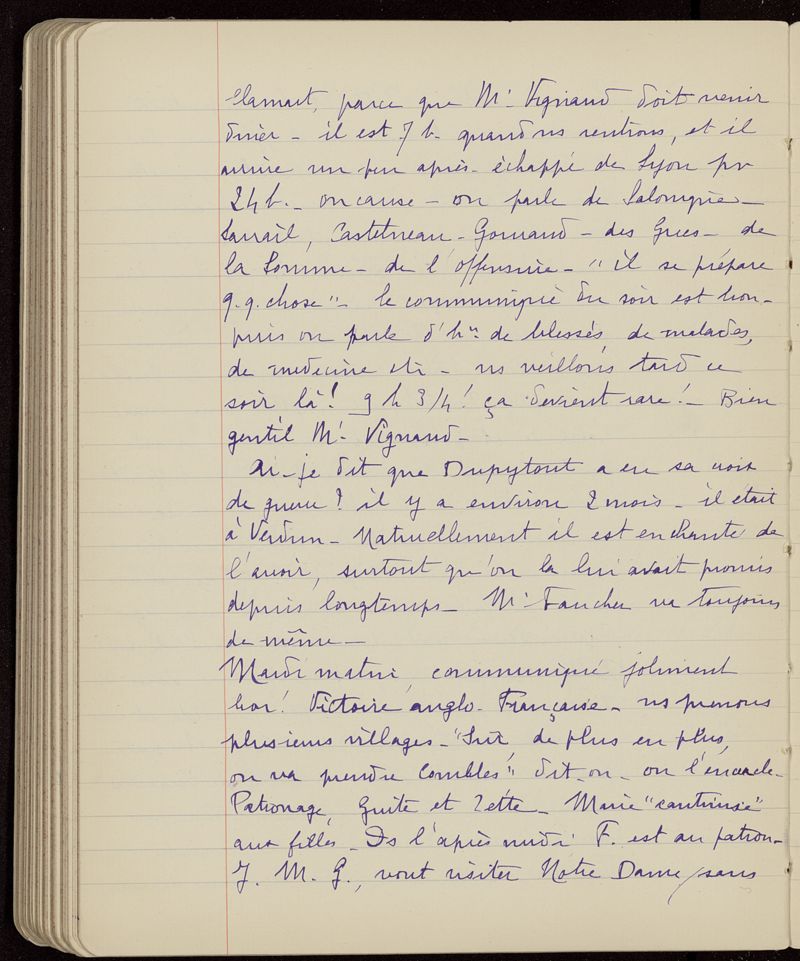 Clamart, parce que Mr Vignaud doit venir
dîner - il est 7 h. quand ns rentrons, et il
arrive un peu après - échappé de Lyon pr
24 h. - on cause - on parle de Salonique -
Sarrail, Castelneau - Gouraud - des Grecs - de
la Somme - de l'offensive - "il se prépare
q.q. chose" - le communiqué du soir est bon -
puis on parle d'hx de blessés, de malades,
de médecine etc - ns veillons tard ce
soir là! 9 h 3/4! ça devient rare! - Bien
gentil Mr Vignaud -
Ai-je dit que Dupytout a eu sa croix
de guerre? il y a environ 2 mois - il était
à Verdun - Naturellement il est enchanté de
l'avoir, surtout qu'on la lui avait promis
depuis longtemps - Mr Faucher va toujours
de même -
Mardi matin, communiqué joliment
bon! Victoire anglo-Française - ns prenons
plusieurs villages - de plus en plus,
on va prendre Combles" dit-on - on l'encercle -
Patronage, Guite et Zette - Marie "cantinise"
aux filles - Ds l'après midi F. est au patron -
J. M. G., vont visiter Notre Dame, sans